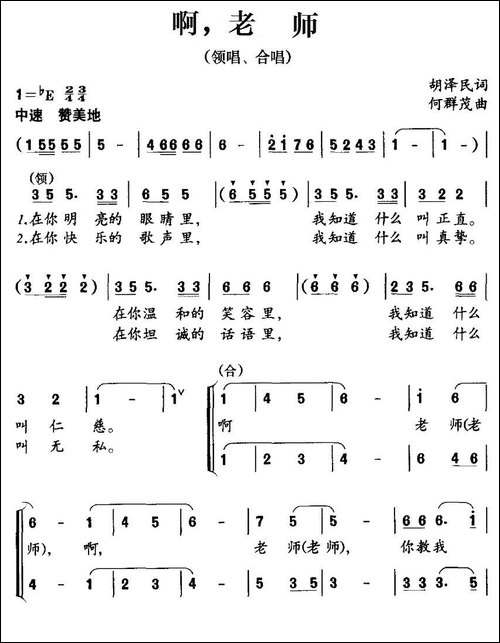 啊，老 师
（领唱、合唱）
1=♭E 2/4 3/4
胡泽民词
何群茂曲
中速 赞美地
(1555 55 | 5 - | 46 66 66 | 6 - | 2176 66 | 5243 | 1 - | 1 -) |
（领）
35 5. 33 | 6 5 5 | (6 5 5 5) | 35 5. 33 | 3 2 2 |
1.在你明 亮的 眼睛里， 我知道 什么 叫正直。
2.在你快 乐的 歌声里， 我知道 什么 叫真挚。
(3 2 2 2) | 35 5. 33 | 6 6 6 | (6 6 6 6) | 23 5. 66 |
在你温 和的 笑容里， 我知道 什么
在你坦 诚的 话语里， 我知道 什么
3 2 | 1 - | 1ⱽ
（合）
1 4 5 | 6 - | i 6
叫仁 慈。 啊 老 师(老
叫无 私。
1 2 3 | 4 - | 6 4 6
6 - | 1 4 5 | 6 - | 7 5 | 5 - | 66 6. i
师)， 啊， 老 师(老师)， 你教我
4 - | 1 2 3 | 4 - | 5 5 3 | 5 - | 33 3. 3